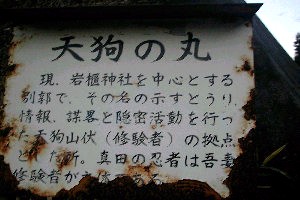 天狗の丸
現、岩櫃神社を中心とする
別郭で、その名の示すとうり、
情報、諜略と隠密活動を行っ
た天狗山伏（修験者）の拠点
とした所。真田の忍者は吾妻
修験者が主体である